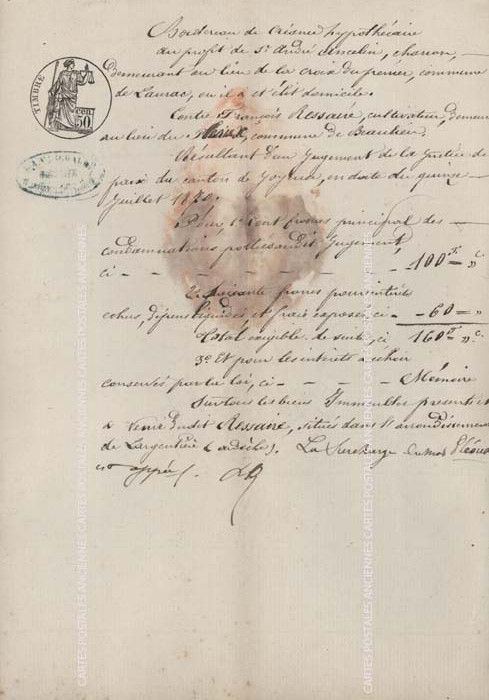 Bordereau de Créance hypothécaire
au profit de Sr André Ancelin, charron,
demeurant au lieu de la croix du premier, commune
de Laurac, où il a et élit domicile.
Contre François Ressaire, cultivateur, demeurant
au lieu du commune de Beaulieu.
Résultant d'un Jugement de la Justice de
paix du canton de Joyeuse, en date du quinze
Juillet 1870.
Pour 1° Cent francs principal des
condamnations portées audit Jugement,
ci - - - - - - - 100 f = "c
2° Soixante francs pour intérêts
échus, dépens liquidés et frais exposés, ci - 60 = "
Total exigible de suite, ci 160 f "c
3° Et pour les intérêts à échoir
conservés par la loi, ci - - - - Mémoire
Sur tous les biens Immeubles présents et
à venir dudit Ressaire, situés dans l'arrondissement
de Largentière (ardèche). La Surcharge du mot
est appr
TIMBRE
50
CARTES POSTALES ANCIENNES CARTES POSTALES ANCIENNES